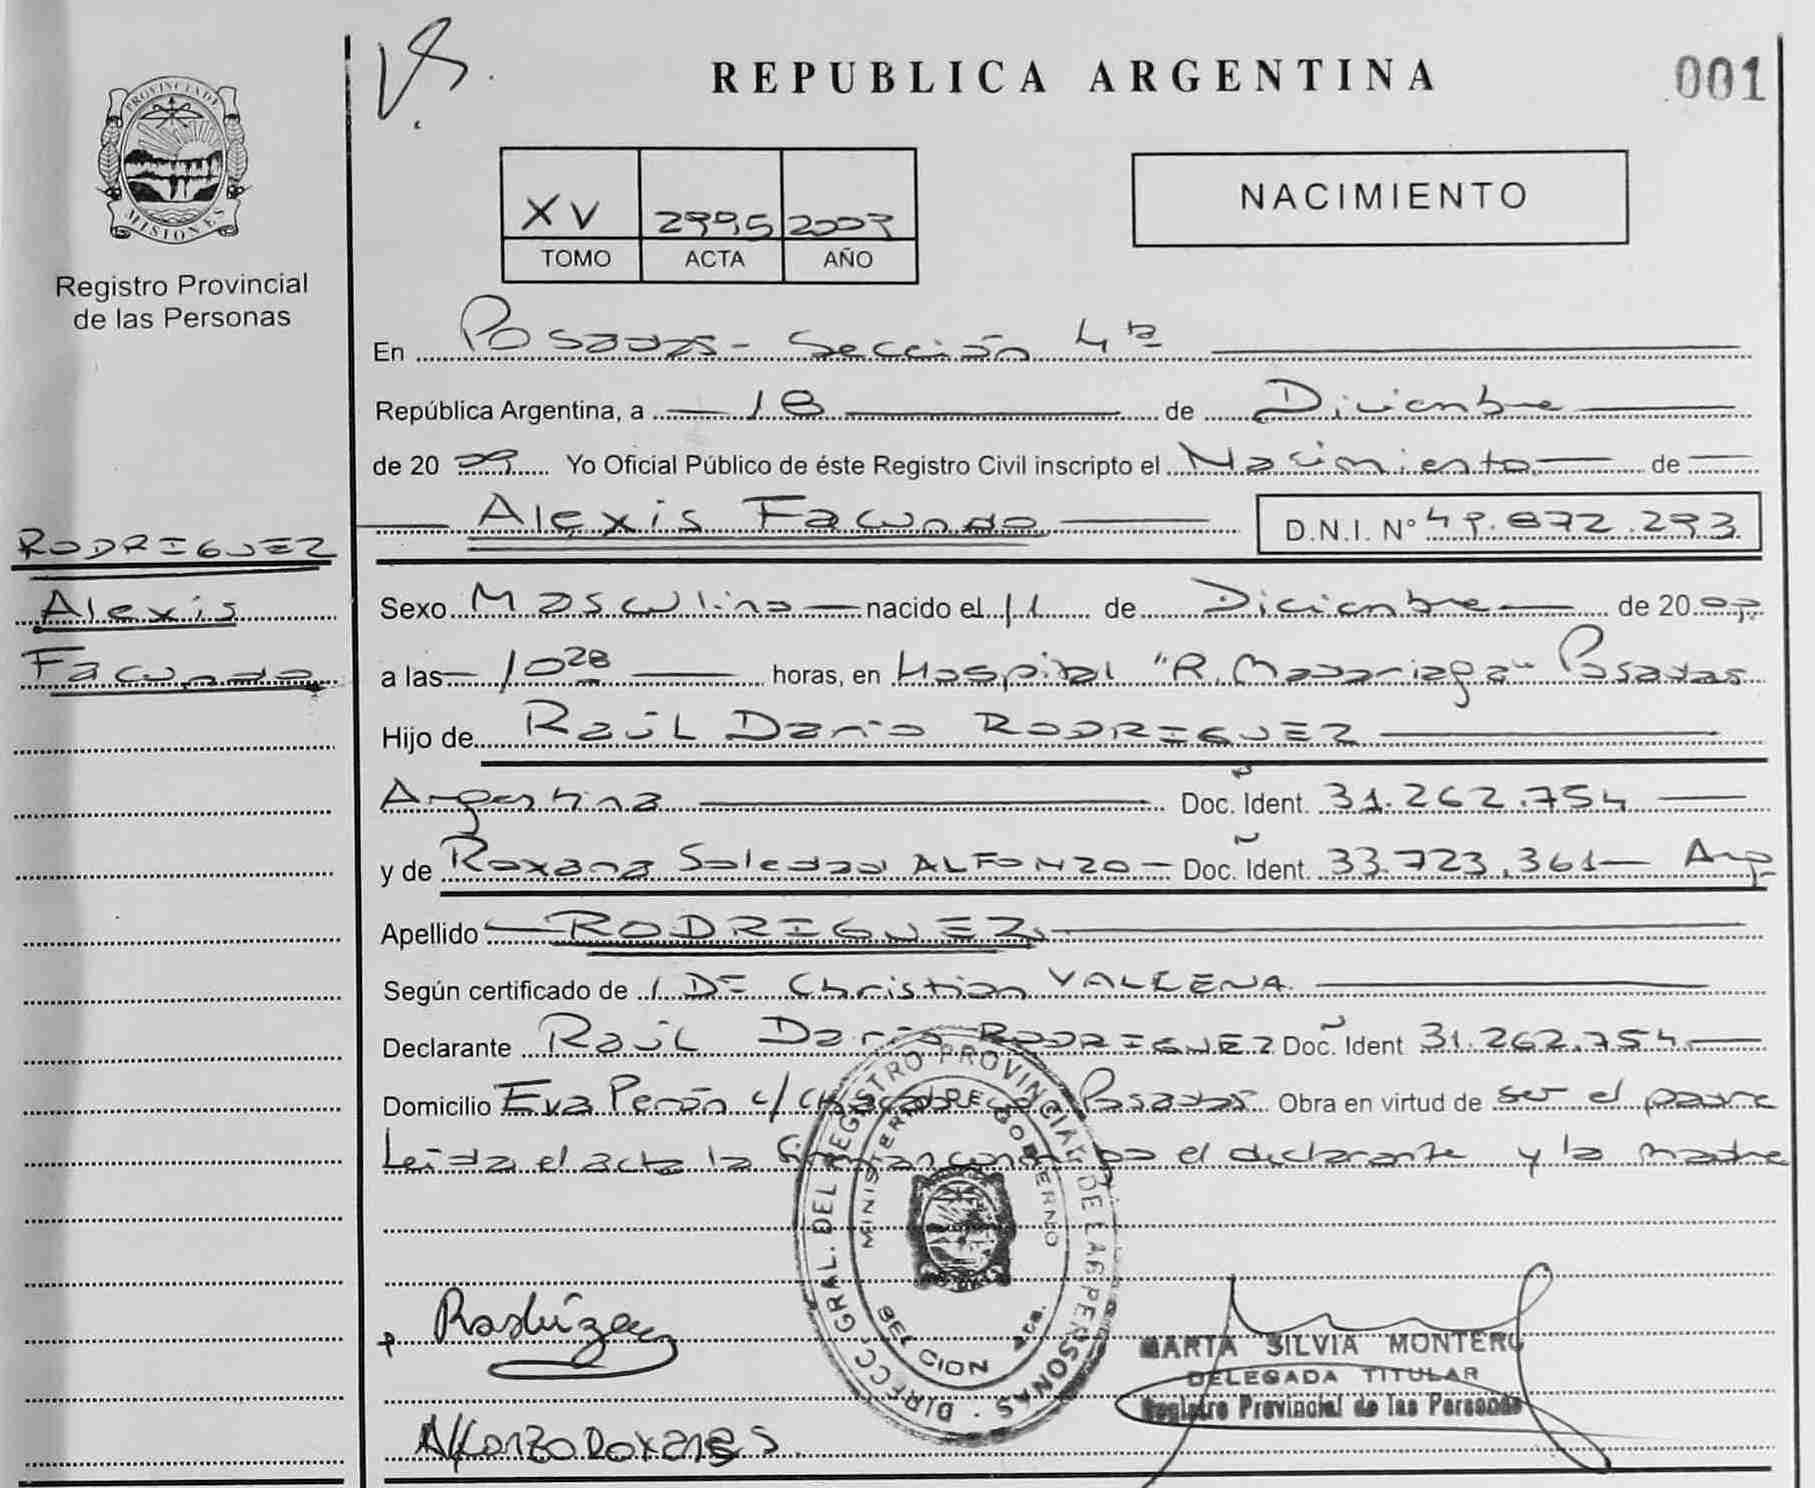 REPUBLICA ARGENTINA
001
PROVINCIA DE
MISIONES
Registro Provincial
de las Personas
XV
TOMO ACTA AÑO
NACIMIENTO
En Posadas - Sección 4ª
República Argentina, a 18 de Diciembre
de 20 09 Yo Oficial Público de éste Registro Civil inscripto el Nacimiento de
Alexis Facundo D.N.I. Nº 49.872.293
RODRIGUEZ
Alexis
Facundo
Sexo Masculino nacido el 11 de Diciembre de 20 09
a las 10 28 horas, en Hospital "R. Madariaga" Posadas
Hijo de Raúl Darío RODRIGUEZ
Argentina Doc. Ident. 31.262.754
y de Roxana Soledad ALFONZO - Doc. Ident. 33.723.361 - Arg
Apellido RODRIGUEZ
Según certificado de Christian
Declarante Raúl Darío RODRIGUEZ Doc. Ident 31.262.754
Domicilio Eva Perón c/ Posadas Obra en virtud de ser el padre
Leída el acta la firman el declarante y la madre
DIRECC. GRAL. DEL REGISTRO PROVINCIAL DE LAS PERSONAS
MINISTERIO DE GOBIERNO
Rodríguez
MARTA SILVIA MONTERO
DELEGADA TITULAR
Registro Provincial de las Personas
Alfonzo Roxana S.